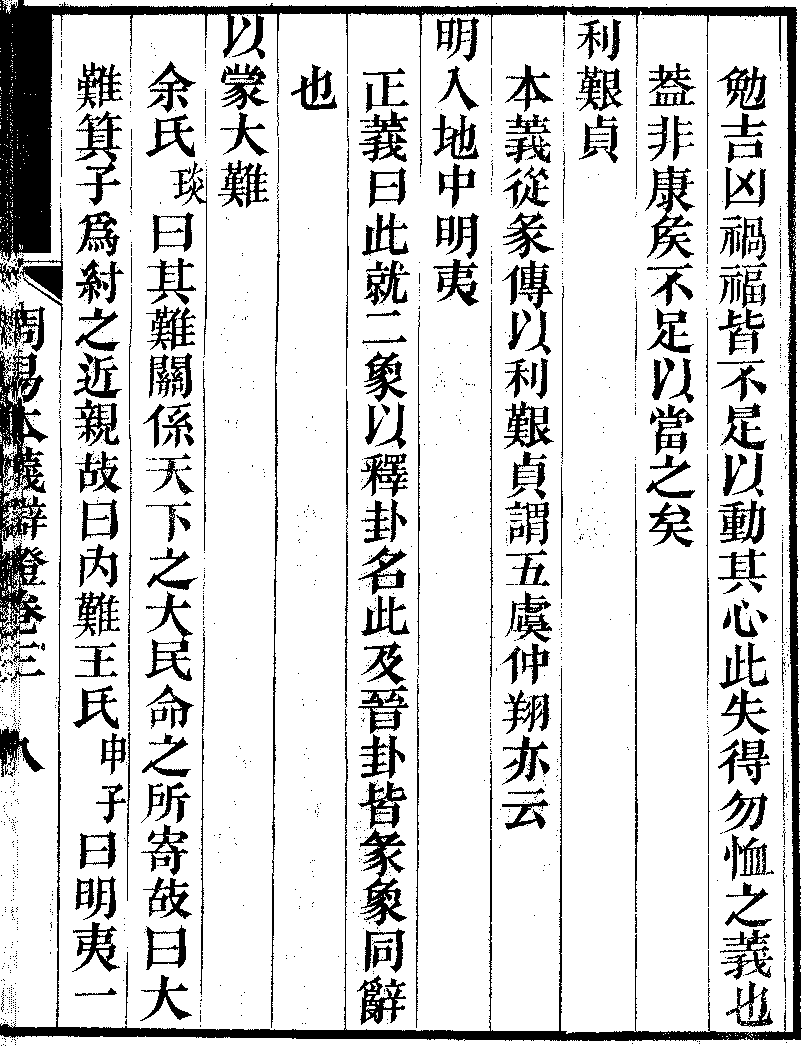 勉吉凶禍福皆不足以動其心此失得勿恤之義也
葢非康矦不足以當之矣
利艱貞
本義從彖傳以利艱貞謂五虞仲翔亦云
明入地中明夷
正義曰此就二象以釋卦名此及晉卦皆彖象同辭
也
以蒙大難
余氏琰曰其難關係天下之大民命之所寄故曰大
難箕子爲紂之近親故曰內難王氏申子曰明夷一
周易本義辯證卷三 八